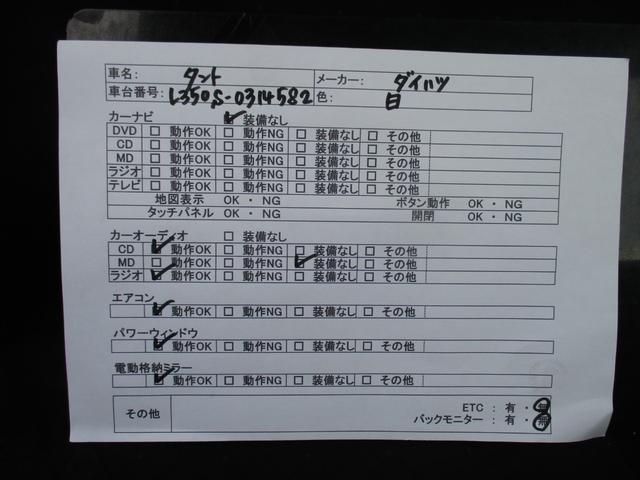 車名: タント メーカー: ダイハツ
車台番号: L350S-0314582 色: 白
カーナビ ☑ 装備なし
DVD □ 動作OK □ 動作NG □ 装備なし □ その他
CD □ 動作OK □ 動作NG □ 装備なし □ その他
MD □ 動作OK □ 動作NG □ 装備なし □ その他
ラジオ □ 動作OK □ 動作NG □ 装備なし □ その他
テレビ □ 動作OK □ 動作NG □ 装備なし □ その他
地図表示 OK ・ NG ボタン動作 OK ・ NG
タッチパネル OK ・ NG 開閉 OK ・ NG
カーオーディオ □ 装備なし
CD ☑ 動作OK □ 動作NG □ 装備なし □ その他
MD □ 動作OK □ 動作NG ☑ 装備なし □ その他
ラジオ ☑ 動作OK □ 動作NG □ 装備なし □ その他
エアコン
☑ 動作OK □ 動作NG □ 装備なし □ その他
パワーウィンドウ
☑ 動作OK □ 動作NG □ 装備なし □ その他
電動格納ミラー
☑ 動作OK □ 動作NG □ 装備なし □ その他
その他 ETC : 有 ・ 無
バックモニター : 有 ・ 無